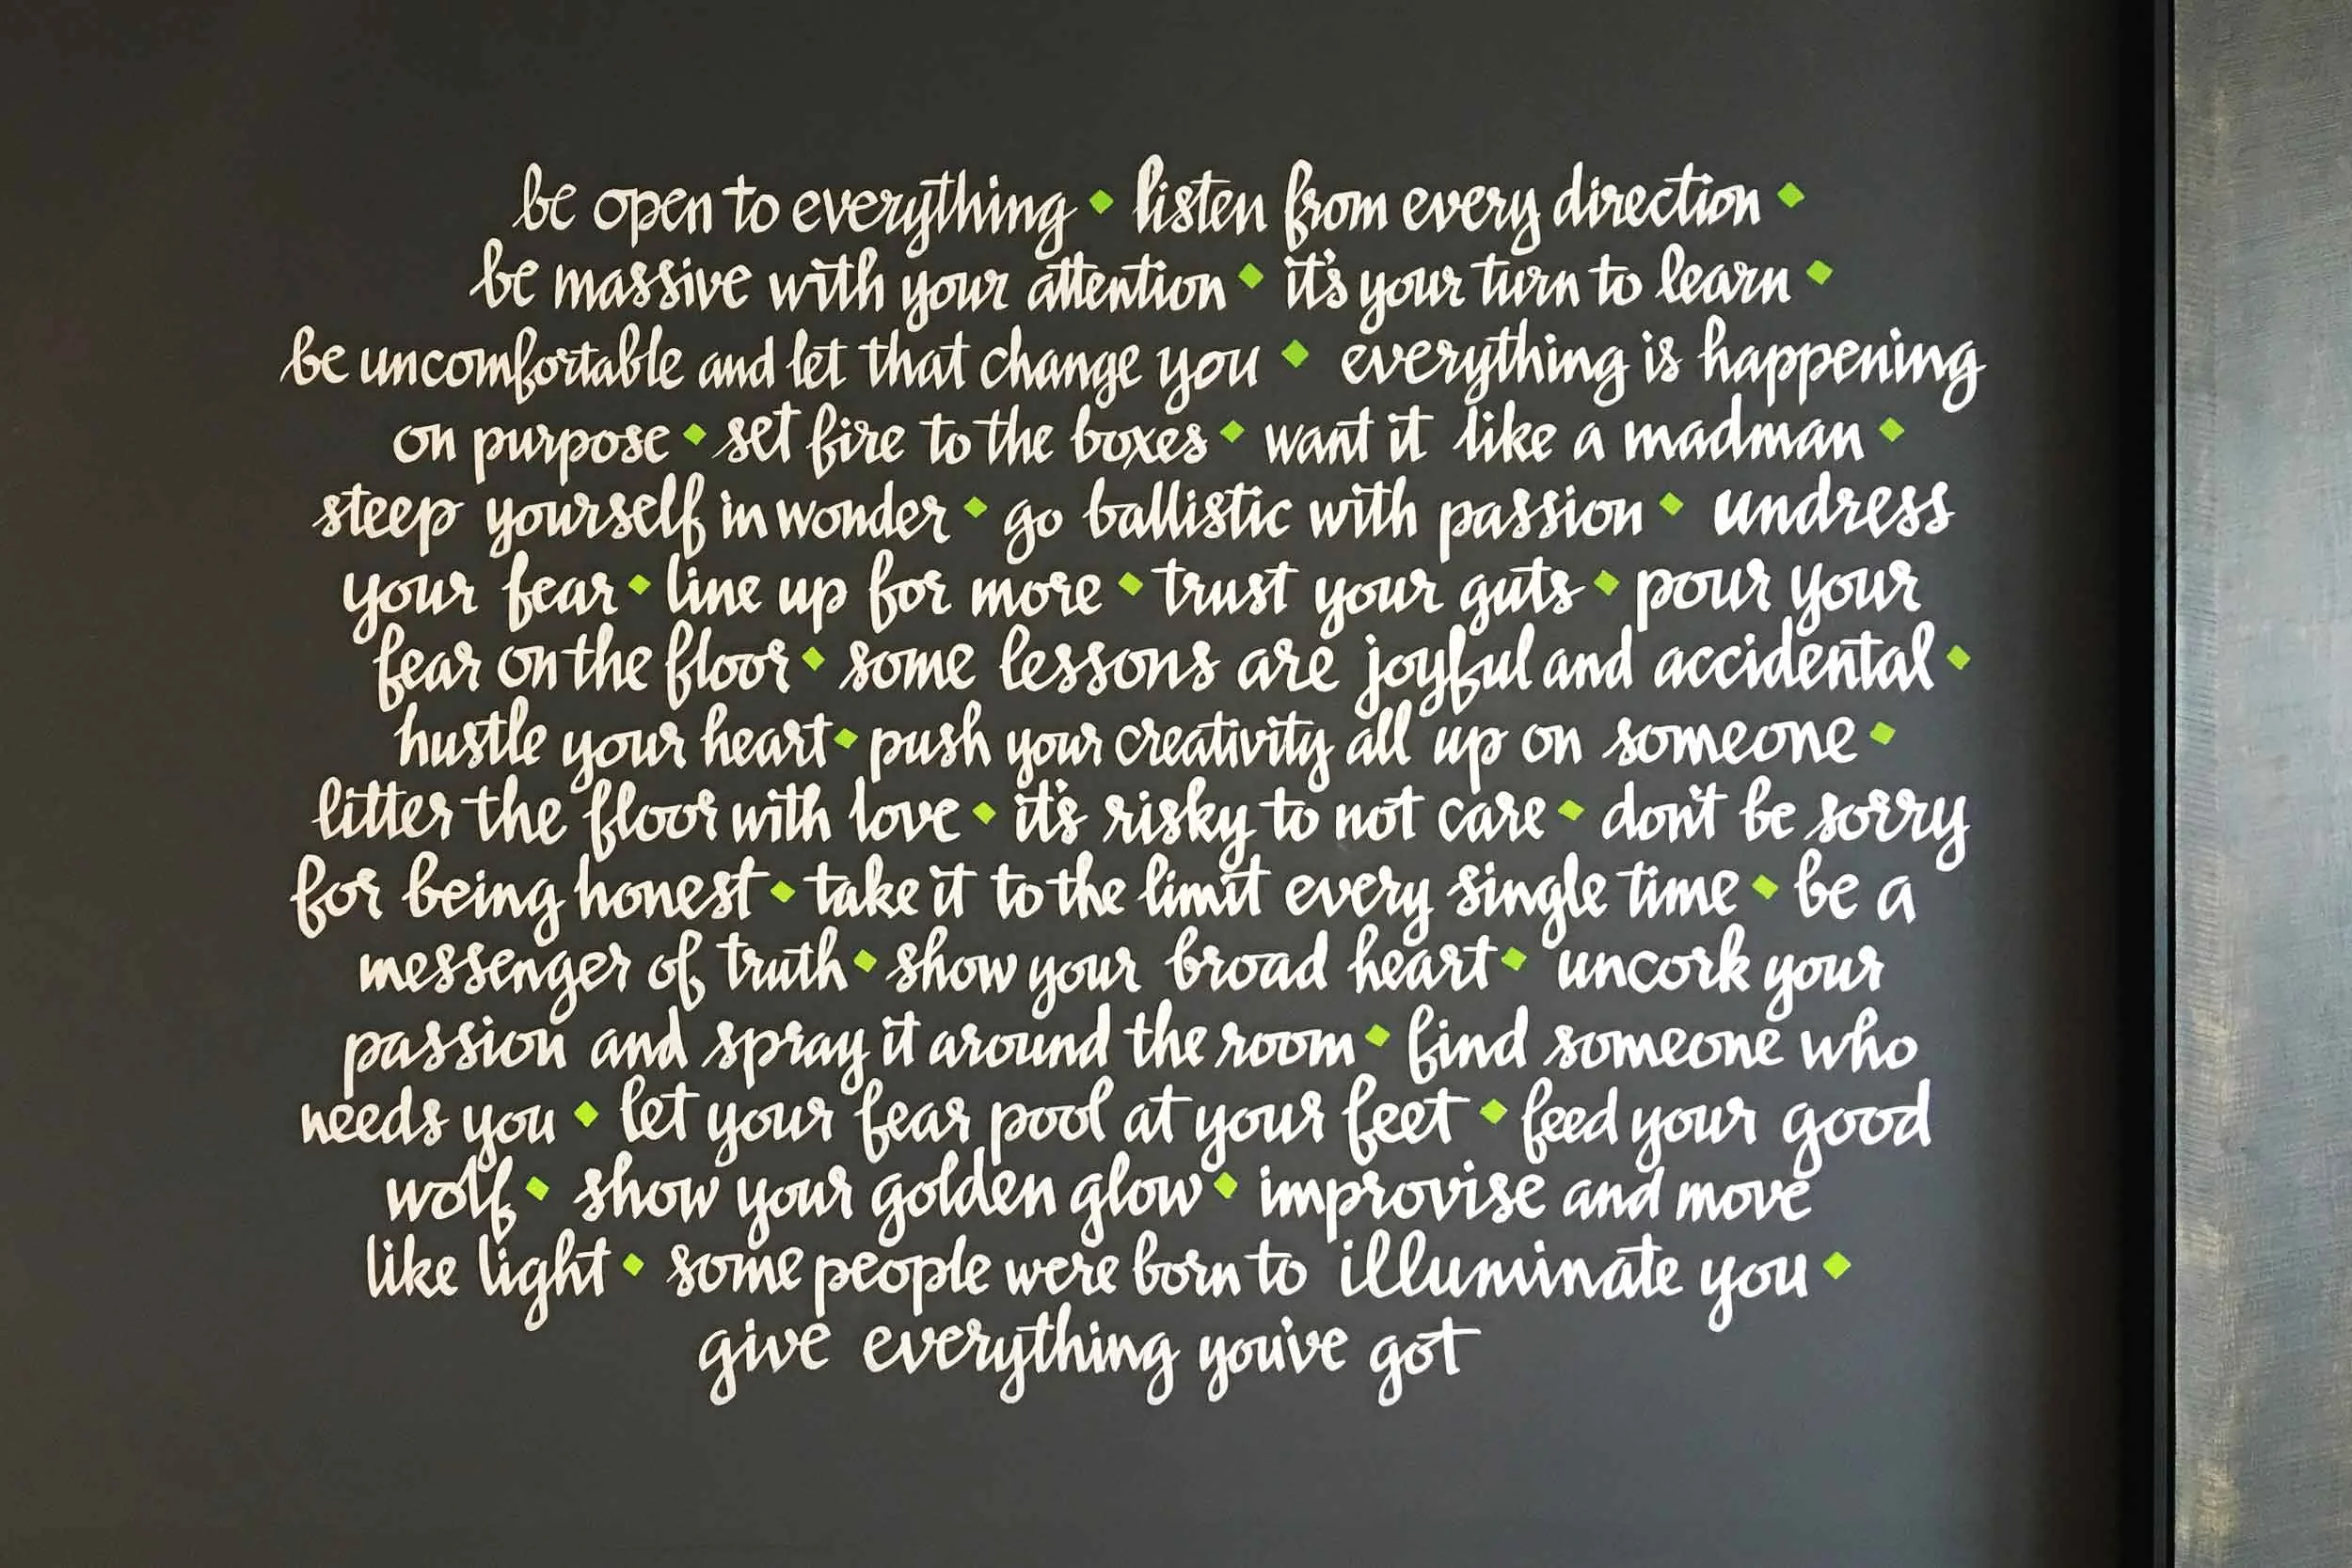 be open to everything ◆ listen from every direction ◆
be massive with your attention ◆ it's your turn to learn ◆
be uncomfortable and let that change you ◆ everything is happening
on purpose ◆ set fire to the boxes ◆ want it like a madman ◆
steep yourself in wonder ◆ go ballistic with passion ◆ undress
your fear ◆ line up for more ◆ trust your guts ◆ pour your
fear on the floor ◆ some lessons are joyful and accidental ◆
hustle your heart ◆ push your creativity all up on someone ◆
litter the floor with love ◆ it's risky to not care ◆ don't be sorry
for being honest ◆ take it to the limit every single time ◆ be a
messenger of truth ◆ show your broad heart ◆ uncork your
passion and spray it around the room ◆ find someone who
needs you ◆ let your fear pool at your feet ◆ feed your good
wolf ◆ show your golden glow ◆ improvise and move
like light ◆ some people were born to illuminate you ◆
give everything you've got